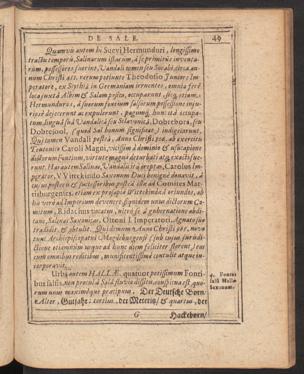 DE SALE. 49
Quamvis autem hi Suevi Hermunduri, longissimo
tractu temporis, Salinarum istarum, à se primitùs inventa-
rum, possessores fuerint, Vandali tamen seu Sorabi,
num Christi 411. rerum potiente Theodosio Juniore Im-
peratore, ex Scythiâ in Germaniam irruentes, omnia ferè
loca juxta Albim & Salam positu, occuparunt,
Hermunduros, à suorum fontium salsorum possessione inju-
riosè dejecerunt ac expulerunt.
patum, lingua suâ Vandalicâ seu Slavonicâ, Dobrebora, seu
Dobresool, quod Sal bonum significat, indigetârunt.
Quî tamen Vandali posteà, Anno Christi ab exercitu
Teutonico Caroli Magni, vicissim à dominio &
dictorum fontium, virtute magnâ deturbati atq; exacti fue-
runt. Harum Salinas, Vandalis ità ereptas, Carolus Im-
perator, VVittekindo Saxonum Duci benignè donavit, à
cujus posteris & successoribus posteà illæ ad Comites Mar-
tisburgenses, etiam ex prosapiâ Wittekindeâ oriundos, ab
his verò ad Imperium devenere, siquidem unus dictorum Co-
mitum, Ridacus vocatus,
tans, Salinas Saxonicas, Ottoni I. Imperatori,
tradidit, & obtulit. Quî deinde Anno Christi 965. novo
tunc Archiepiscopatui Magdeburgensi (sub cujus jurisdi-
ctione etiamnum usque ad hunc diem feliciter florent) eas
cum omnibus reditibus, munificentissimè contulit atque in-
corporavit.
Urbs autem HALLÆ, quatuor potissimum Fonti-
bus salsis, non procul à Salæ fluvio dissitis, conspicua est, quo-
rum unus maximéque præcipuus, Der Deutsche Born,
Alter, Gutjahr: tertius, der Meteritz/ & quartus, der
G Hackeborn/
4. Fontes
salsi Hallæ
Saxonum.